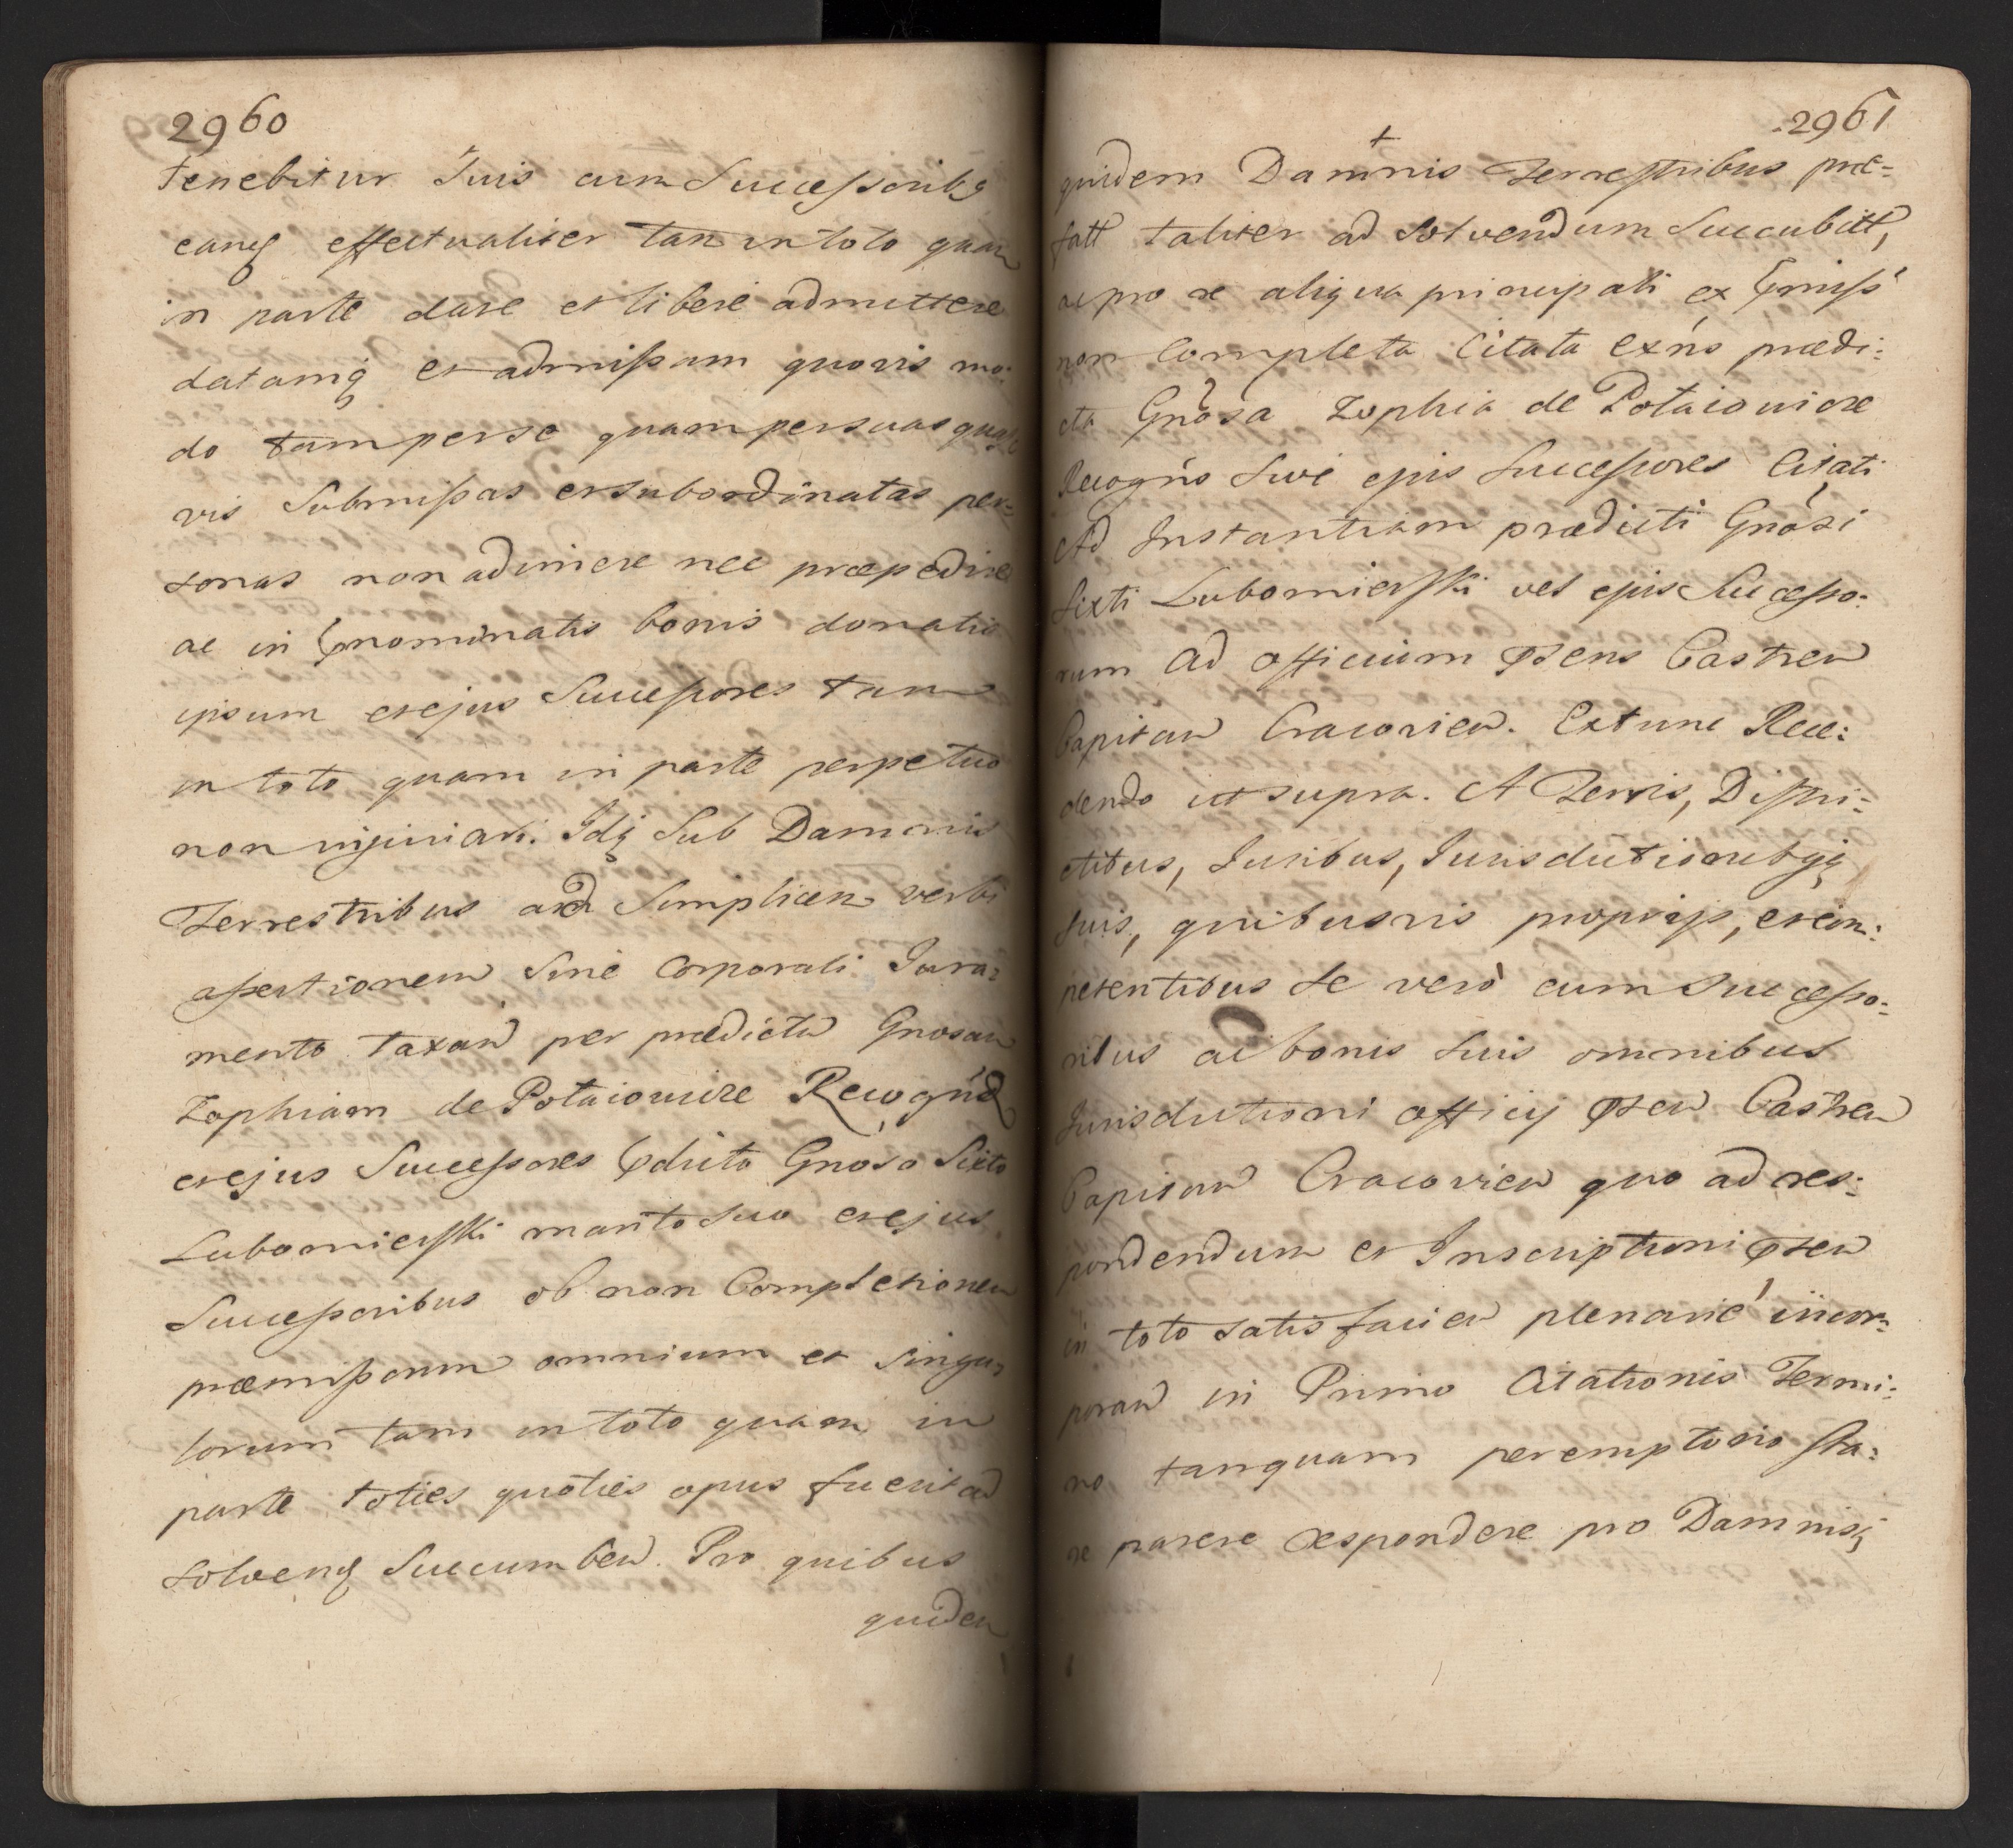 2960
tenebitur Suis cum Successoribq
eamq effectualiter tam in toto quam
in parte dare et libere admittere
datamq et admissam quovis mo:
do tam per se quam per suas quas
vis Submissas et subordinatas per:
sonas non adimere nec præpedire
ac in prnominatis bonis donatis
ipsum et ejus Successores tam
in toto quam in parte perpetuo
non injuriari. Idq Sub Damnis
Terrestribus ad Simplicem verbi
assertionem Sine Corporali Jura:
mento taxan per prædictā Gnosam
Zophiam de Potaiowicze Recognd
et ejus Successores prdicto Gnoso Sixto
Lubomierski marito suo et ejus
Successoribus ob non Completionem
præmissorum omnium et Singu,
lorum tam in toto quam in
parte toties quoties opus fuerit ad
solvenq Succumben. Pro quibus
quidem
2961
quidem Damnis Terrestribus præ=
fatt taliter ad Solvendum Succubitt,
ac pro re aliqua principali ex prmiss
non Completa Citata Exńs prædi:
cta Gnosa Zophia de Potaiowicze
Recogńs Sive ejus Successores Citati
Ad Instantiam prædicti Gnosi
Sixti Lubomierski vel ejus Successo:
rum Ad officium prsens Castren
Capitan Cracovien. Extunc Rece:
dendo ut supra. A Terris, Distri=
ctibus, Juribus, Jurisdictionibqq
suis, quibusvis proprijs, et com:
petentibus se vero cum Successo:
ribus ac bonis suis omnibus
Jurisdictioni officij prsen Castren
Capitan Cracovien quo ad res:
pondendum et Inscriptioni prsen
in toto satisfacien plenarie incor:
poran in Primo Citationis Termi:
no tanquam peremptorio Sta:
re parere respondere pro Damnisq